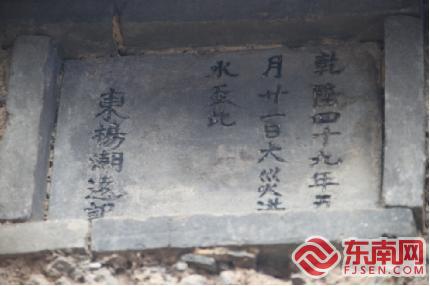 乾隆四十九年五
月廿一日大災洪
水至此
東楊潮記
东南网
FJSEN.COM